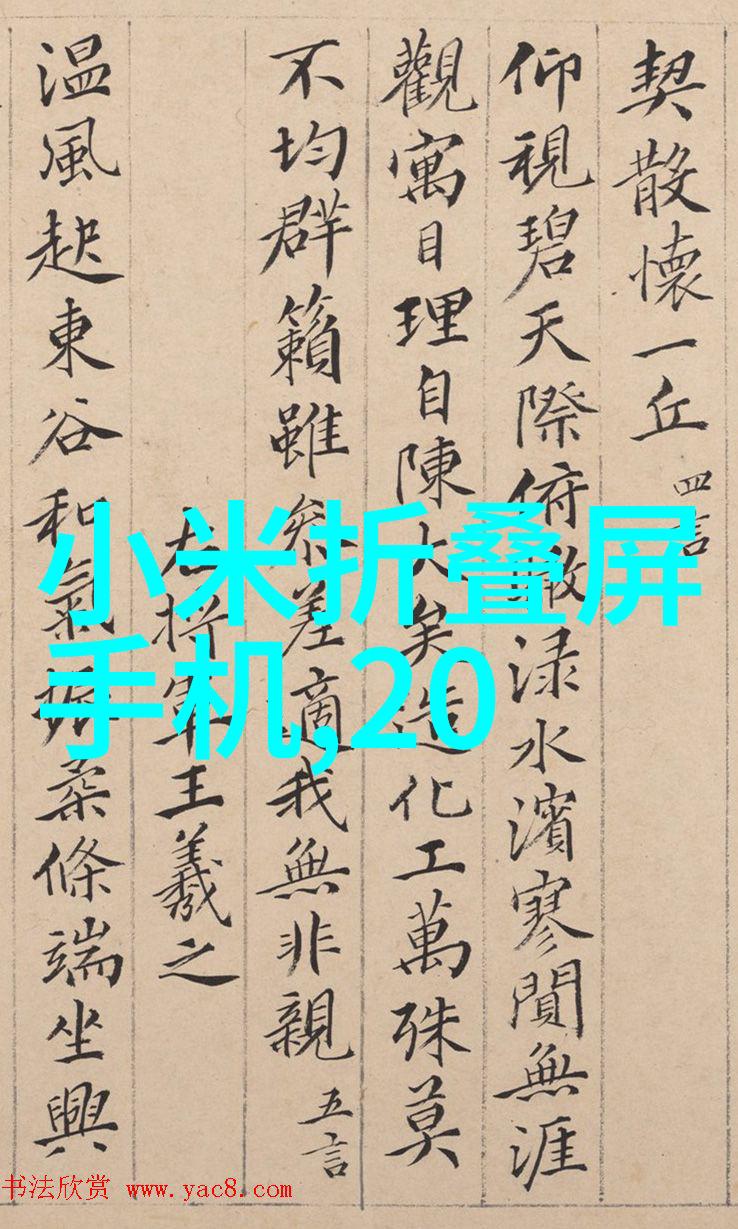 契散懷一丘 四言
仰視碧天際俯瞰渌水濱寥閴無涯
觀寓目理自陳大矣造化工萬殊莫
不均群籟雖參差適我無非親 五言
右將軍王羲之
温風起東谷和氣振柔條端坐興
小米折叠屏
手机,20
书法欣赏 www.yac8.com